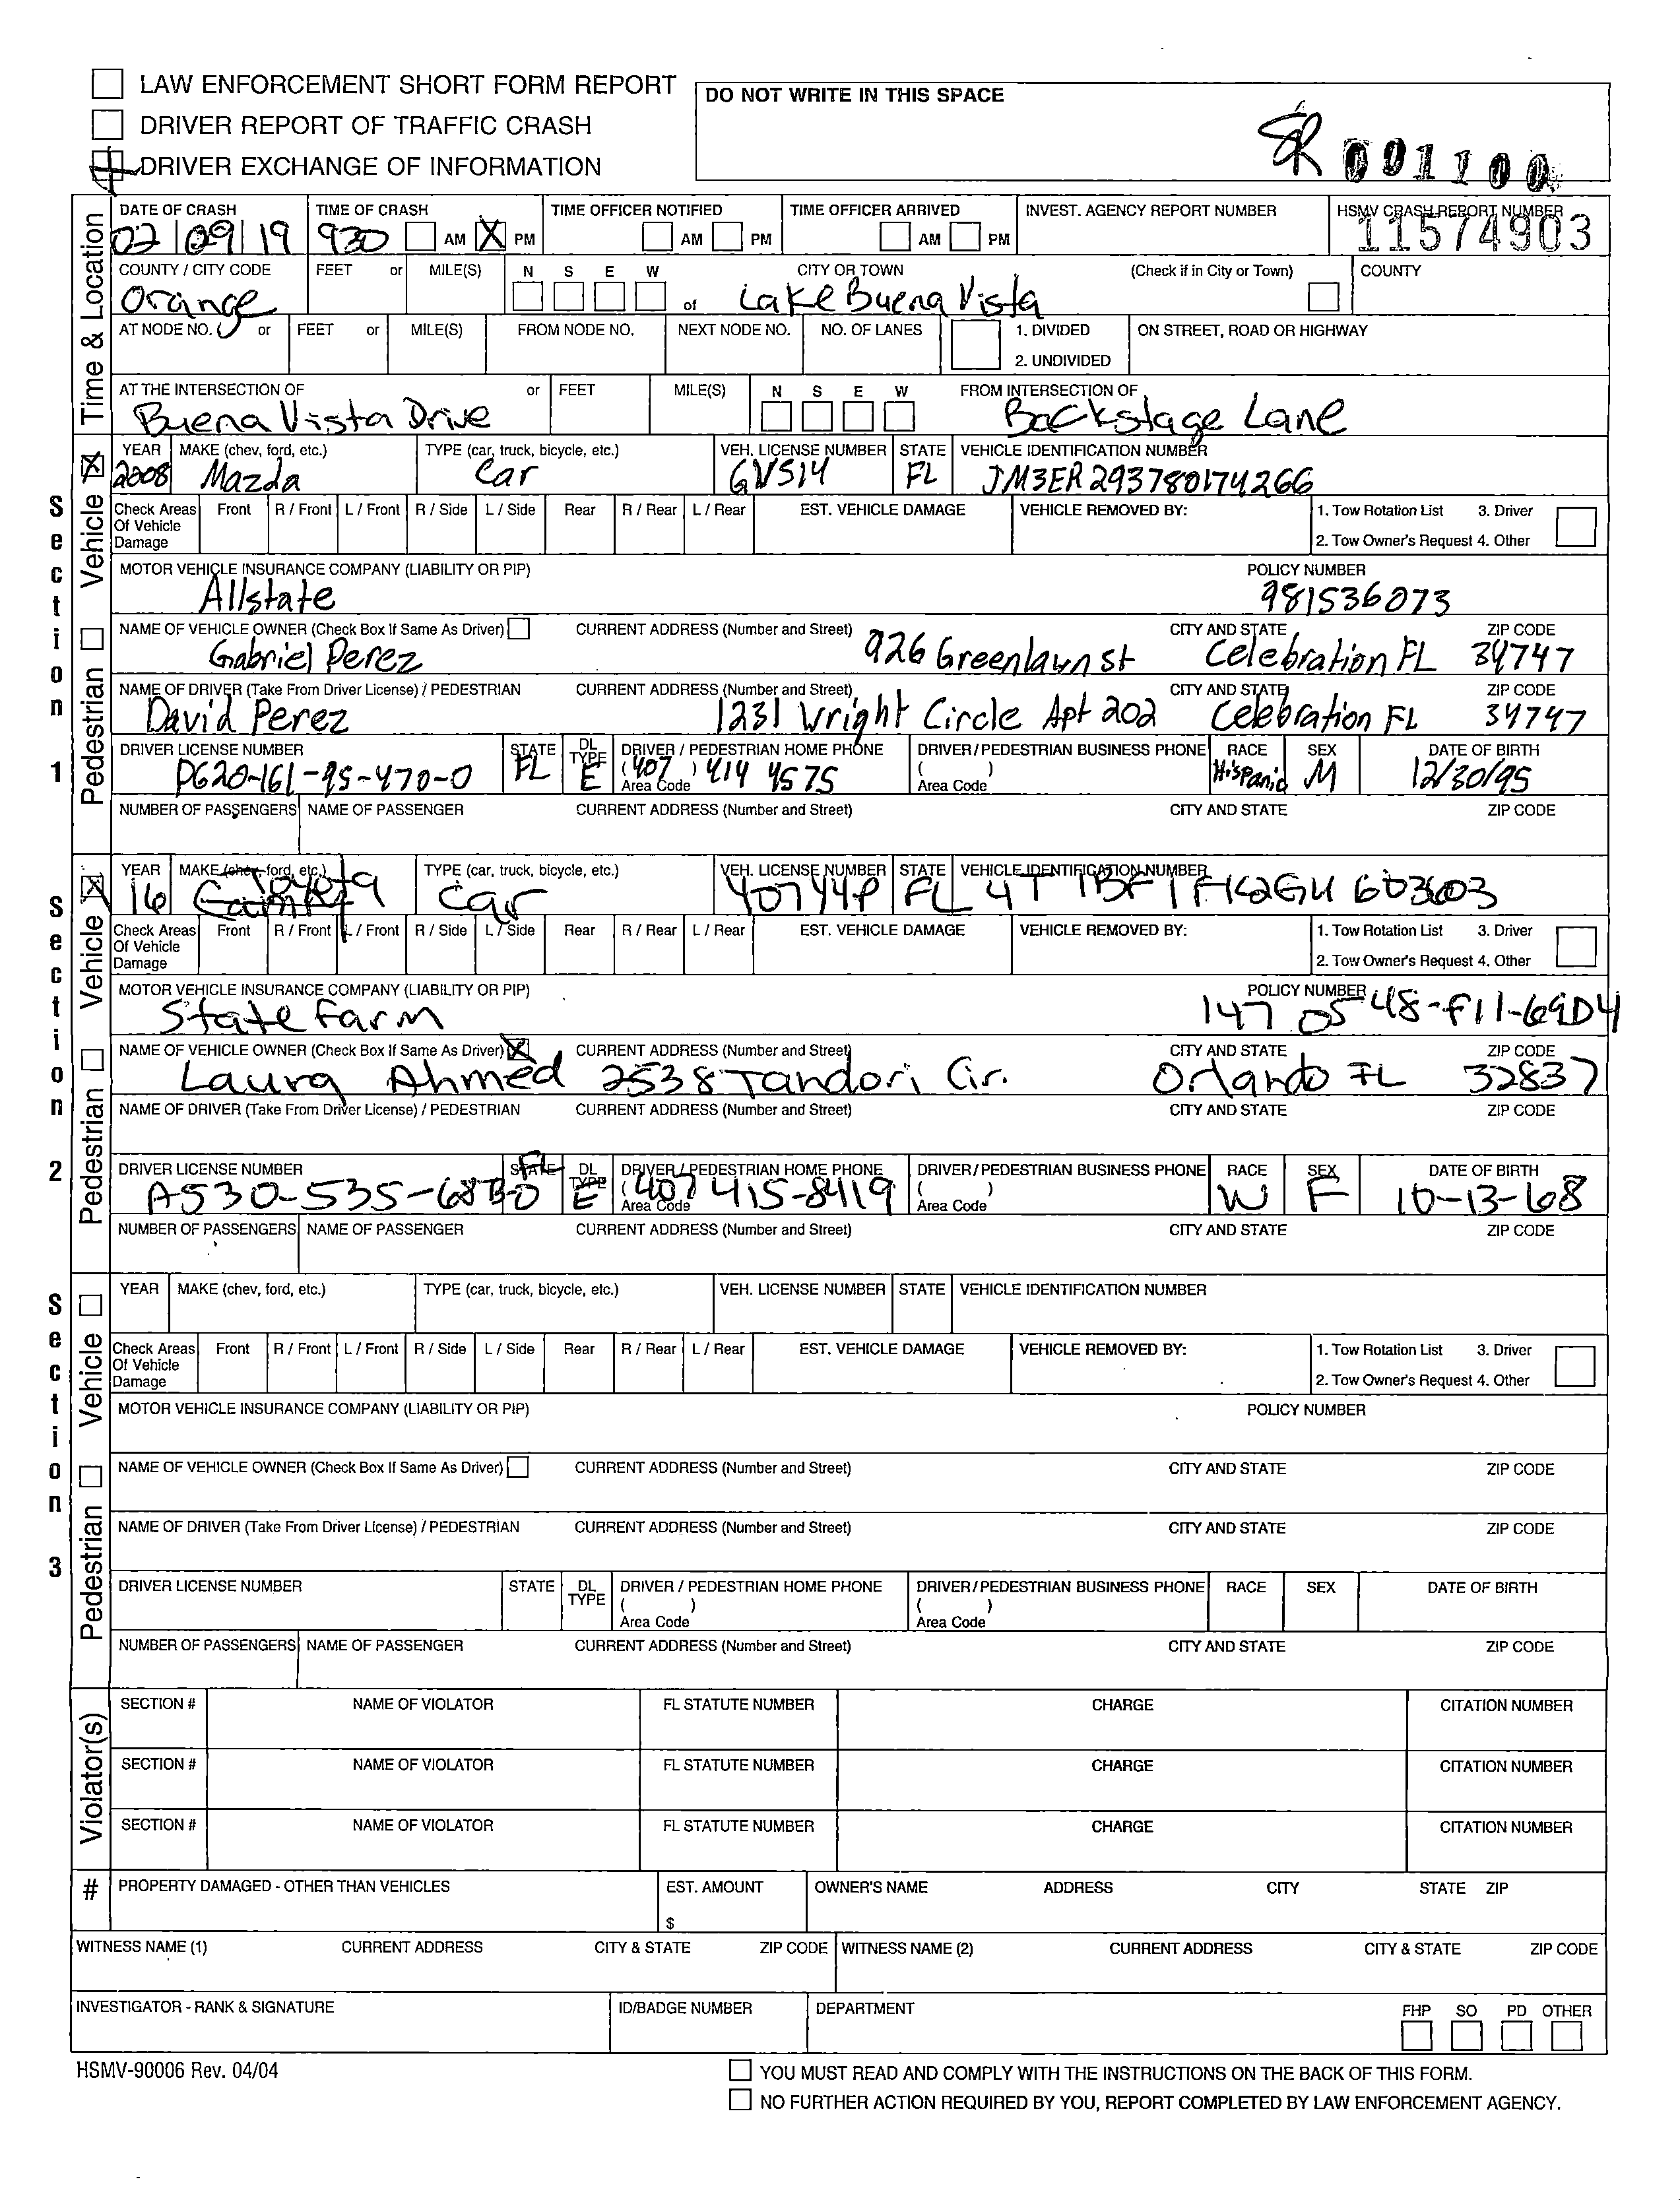 LAW ENFORCEMENT SHORT FORM REPORT
DRIVER REPORT OF TRAFFIC CRASH
DRIVER EXCHANGE OF INFORMATION
DO NOT WRITE IN THIS SPACE
001100
Time & Location
DATE OF CRASH TIME OF CRASH TIME OFFICER NOTIFIED TIME OFFICER ARRIVED INVEST. AGENCY REPORT NUMBER HSMV CRASH REPORT NUMBER
02 09 19 930 AM X PM AM PM AM PM 11574903
COUNTY / CITY CODE FEET or MILE(S) N S E W CITY OR TOWN (Check if in City or Town) COUNTY
Orange of Lake Buena Vista
AT NODE NO. or FEET or MILE(S) FROM NODE NO. NEXT NODE NO. NO. OF LANES 1. DIVIDED ON STREET, ROAD OR HIGHWAY
2. UNDIVIDED
AT THE INTERSECTION OF or FEET MILE(S) N S E W FROM INTERSECTION OF
Buena Vista Drive Backstage Lane
Section 1
Pedestrian Vehicle X
YEAR MAKE (chev, ford, etc.) TYPE (car, truck, bicycle, etc.) VEH. LICENSE NUMBER STATE VEHICLE IDENTIFICATION NUMBER
2008 Mazda Car GVS14 FL JM3ER293780174266
Check Areas Of Vehicle Damage Front R / Front L / Front R / Side L / Side Rear R / Rear L / Rear EST. VEHICLE DAMAGE VEHICLE REMOVED BY: 1. Tow Rotation List 3. Driver
2. Tow Owner's Request 4. Other
MOTOR VEHICLE INSURANCE COMPANY (LIABILITY OR PIP) POLICY NUMBER
Allstate 981536073
NAME OF VEHICLE OWNER (Check Box If Same As Driver) CURRENT ADDRESS (Number and Street) CITY AND STATE ZIP CODE
Gabriel Perez 926 Greenlawn st Celebration FL 34747
NAME OF DRIVER (Take From Driver License) / PEDESTRIAN CURRENT ADDRESS (Number and Street) CITY AND STATE ZIP CODE
David Perez 1231 Wright Circle Apt 202 Celebration FL 34747
DRIVER LICENSE NUMBER STATE DL TYPE DRIVER / PEDESTRIAN HOME PHONE DRIVER/PEDESTRIAN BUSINESS PHONE RACE SEX DATE OF BIRTH
P620-161-95-470-0 FL E (407) 414 4575 ( ) Hispanic M 12/30/95
Area Code Area Code
NUMBER OF PASSENGERS NAME OF PASSENGER CURRENT ADDRESS (Number and Street) CITY AND STATE ZIP CODE
Section 2
Pedestrian Vehicle X
YEAR MAKE (chev, ford, etc.) TYPE (car, truck, bicycle, etc.) VEH. LICENSE NUMBER STATE VEHICLE IDENTIFICATION NUMBER
16 Toyota Car 40744P FL 4T1BF1FK2GU603603
Check Areas Of Vehicle Damage Front R / Front L / Front R / Side L / Side Rear R / Rear L / Rear EST. VEHICLE DAMAGE VEHICLE REMOVED BY: 1. Tow Rotation List 3. Driver
2. Tow Owner's Request 4. Other
MOTOR VEHICLE INSURANCE COMPANY (LIABILITY OR PIP) POLICY NUMBER
State Farm 147 0548-F11-69D4
NAME OF VEHICLE OWNER (Check Box If Same As Driver) X CURRENT ADDRESS (Number and Street) CITY AND STATE ZIP CODE
Laura Ahmed 2538 Tandori Cir. Orlando FL 32837
NAME OF DRIVER (Take From Driver License) / PEDESTRIAN CURRENT ADDRESS (Number and Street) CITY AND STATE ZIP CODE
DRIVER LICENSE NUMBER STATE DL TYPE DRIVER / PEDESTRIAN HOME PHONE DRIVER/PEDESTRIAN BUSINESS PHONE RACE SEX DATE OF BIRTH
FL E (407 415-8419 ( ) W F 10-13-68
Area Code Area Code
NUMBER OF PASSENGERS NAME OF PASSENGER CURRENT ADDRESS (Number and Street) CITY AND STATE ZIP CODE
Section 3
Pedestrian Vehicle
YEAR MAKE (chev, ford, etc.) TYPE (car, truck, bicycle, etc.) VEH. LICENSE NUMBER STATE VEHICLE IDENTIFICATION NUMBER
Check Areas Of Vehicle Damage Front R / Front L / Front R / Side L / Side Rear R / Rear L / Rear EST. VEHICLE DAMAGE VEHICLE REMOVED BY: 1. Tow Rotation List 3. Driver
2. Tow Owner's Request 4. Other
MOTOR VEHICLE INSURANCE COMPANY (LIABILITY OR PIP) POLICY NUMBER
NAME OF VEHICLE OWNER (Check Box If Same As Driver) CURRENT ADDRESS (Number and Street) CITY AND STATE ZIP CODE
NAME OF DRIVER (Take From Driver License) / PEDESTRIAN CURRENT ADDRESS (Number and Street) CITY AND STATE ZIP CODE
DRIVER LICENSE NUMBER STATE DL TYPE DRIVER / PEDESTRIAN HOME PHONE DRIVER/PEDESTRIAN BUSINESS PHONE RACE SEX DATE OF BIRTH
( ) ( )
Area Code Area Code
NUMBER OF PASSENGERS NAME OF PASSENGER CURRENT ADDRESS (Number and Street) CITY AND STATE ZIP CODE
Violator(s)
SECTION # NAME OF VIOLATOR FL STATUTE NUMBER CHARGE CITATION NUMBER
SECTION # NAME OF VIOLATOR FL STATUTE NUMBER CHARGE CITATION NUMBER
SECTION # NAME OF VIOLATOR FL STATUTE NUMBER CHARGE CITATION NUMBER
# PROPERTY DAMAGED - OTHER THAN VEHICLES EST. AMOUNT OWNER'S NAME ADDRESS CITY STATE ZIP
$
WITNESS NAME (1) CURRENT ADDRESS CITY & STATE ZIP CODE WITNESS NAME (2) CURRENT ADDRESS CITY & STATE ZIP CODE
INVESTIGATOR - RANK & SIGNATURE ID/BADGE NUMBER DEPARTMENT FHP SO PD OTHER
HSMV-90006 Rev. 04/04
YOU MUST READ AND COMPLY WITH THE INSTRUCTIONS ON THE BACK OF THIS FORM.
NO FURTHER ACTION REQUIRED BY YOU, REPORT COMPLETED BY LAW ENFORCEMENT AGENCY.